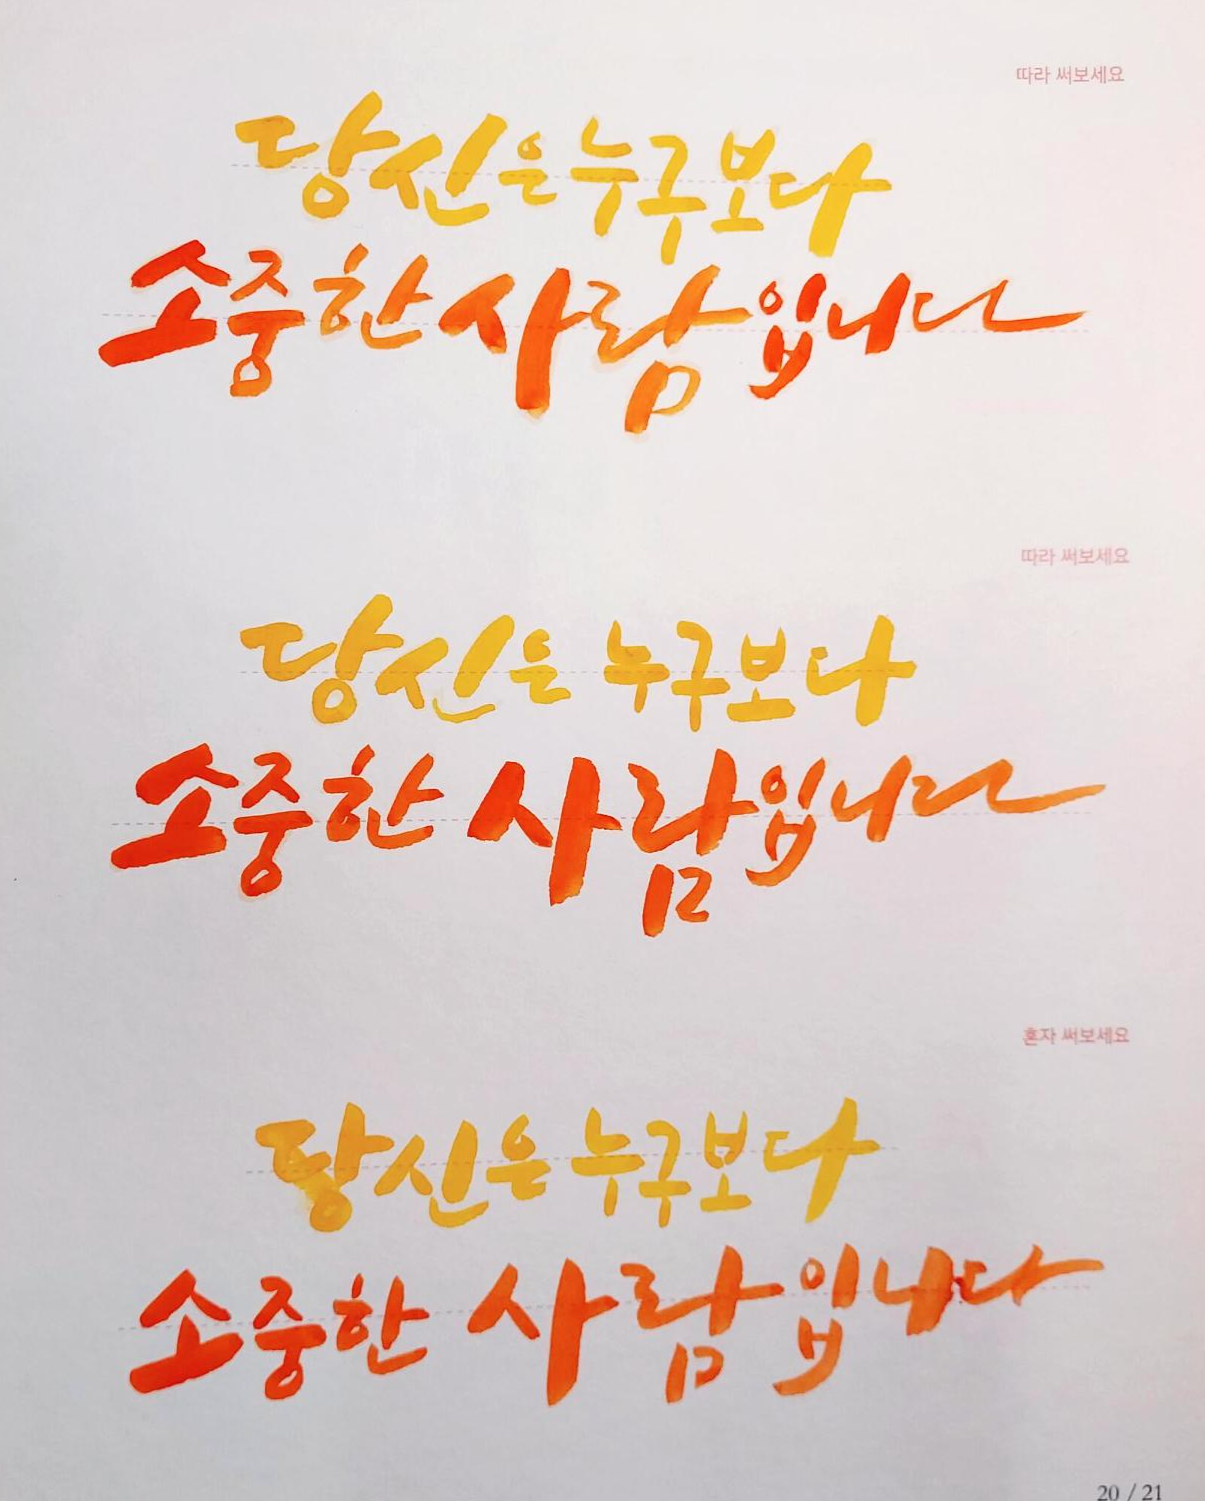 따라 써보세요
당신은 누구보다
소중한 사람입니다
따라 써보세요
당신은 누구보다
소중한 사람입니다
혼자 써보세요
당신은 누구보다
소중한 사람입니다
20 / 21